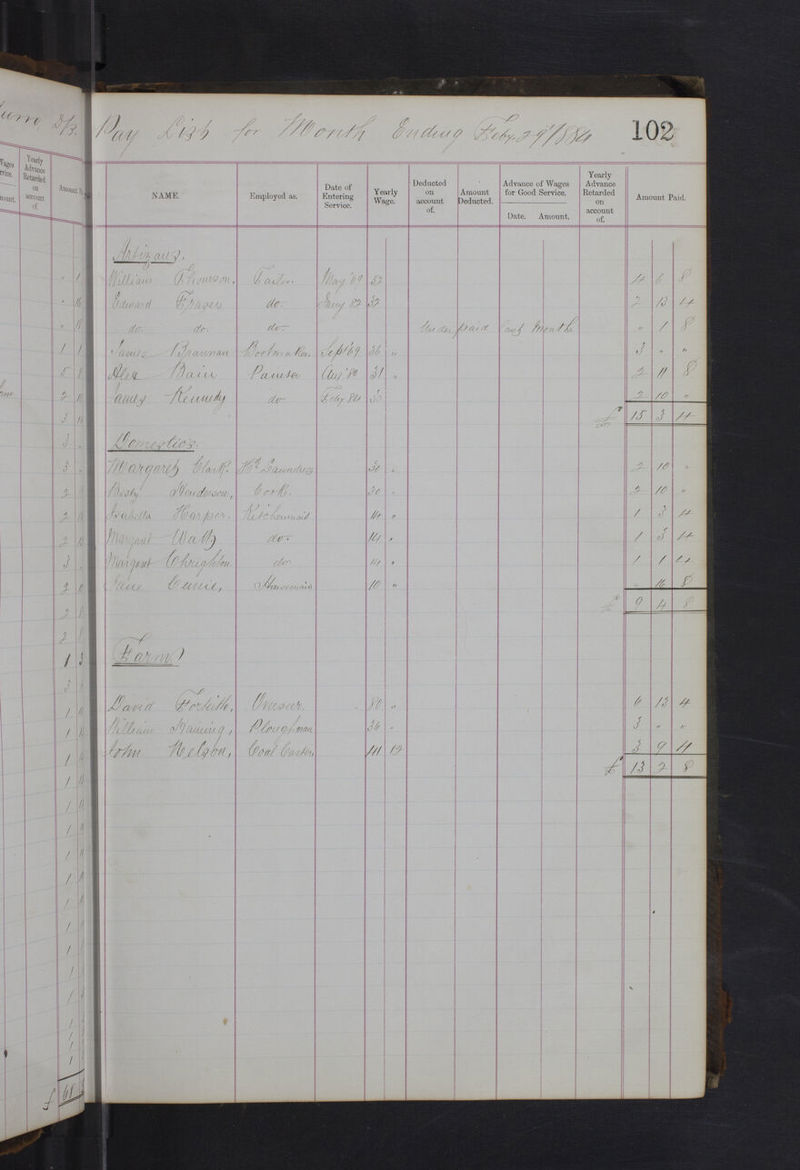 Pay List for Month Ending Feby 29/1884
102
NAME. Employed as. Date of Entering Service. Yearly Wage. Deducted on account of. Amount Deducted. Advance of Wages for Good Service. Date. Amount. Yearly Advance Retarded on account of. Amount Paid.
Artizans.
William Thomson. Tailor May '69 52 4 6 8
Edward Fraser do. 82 32 2 13 4
do. do. do. Under paid last Month " 1 8
James Brannan Bootmaker Sept 69 36 " 3 " "
Alex Bain Painter Aug '80 31 " 2 11 8
James Kennedy do Feby 84 30 2 10 "
£ 15 3 4
Domestics.
Margaret Clark. Hd Laundress 30 " 2 10 "
Betsy Henderson, Cook. 30 " 2 10 "
Isabella Harper. Kitchenmaid 14 " 1 3 4
Margaret Watt do. 14 " 1 3 4
Margaret Chrighton do " 1 1
Jane Cunie, Housemaid 10 " 16 8
£ 9 4 8
Farm
David Forsith. Overseer 80 " 6 13 4
William Haining, Ploughman 36 " 3 " "
John Nelson, Coal Carter 41 19 3 9 11
£ 13 2 8